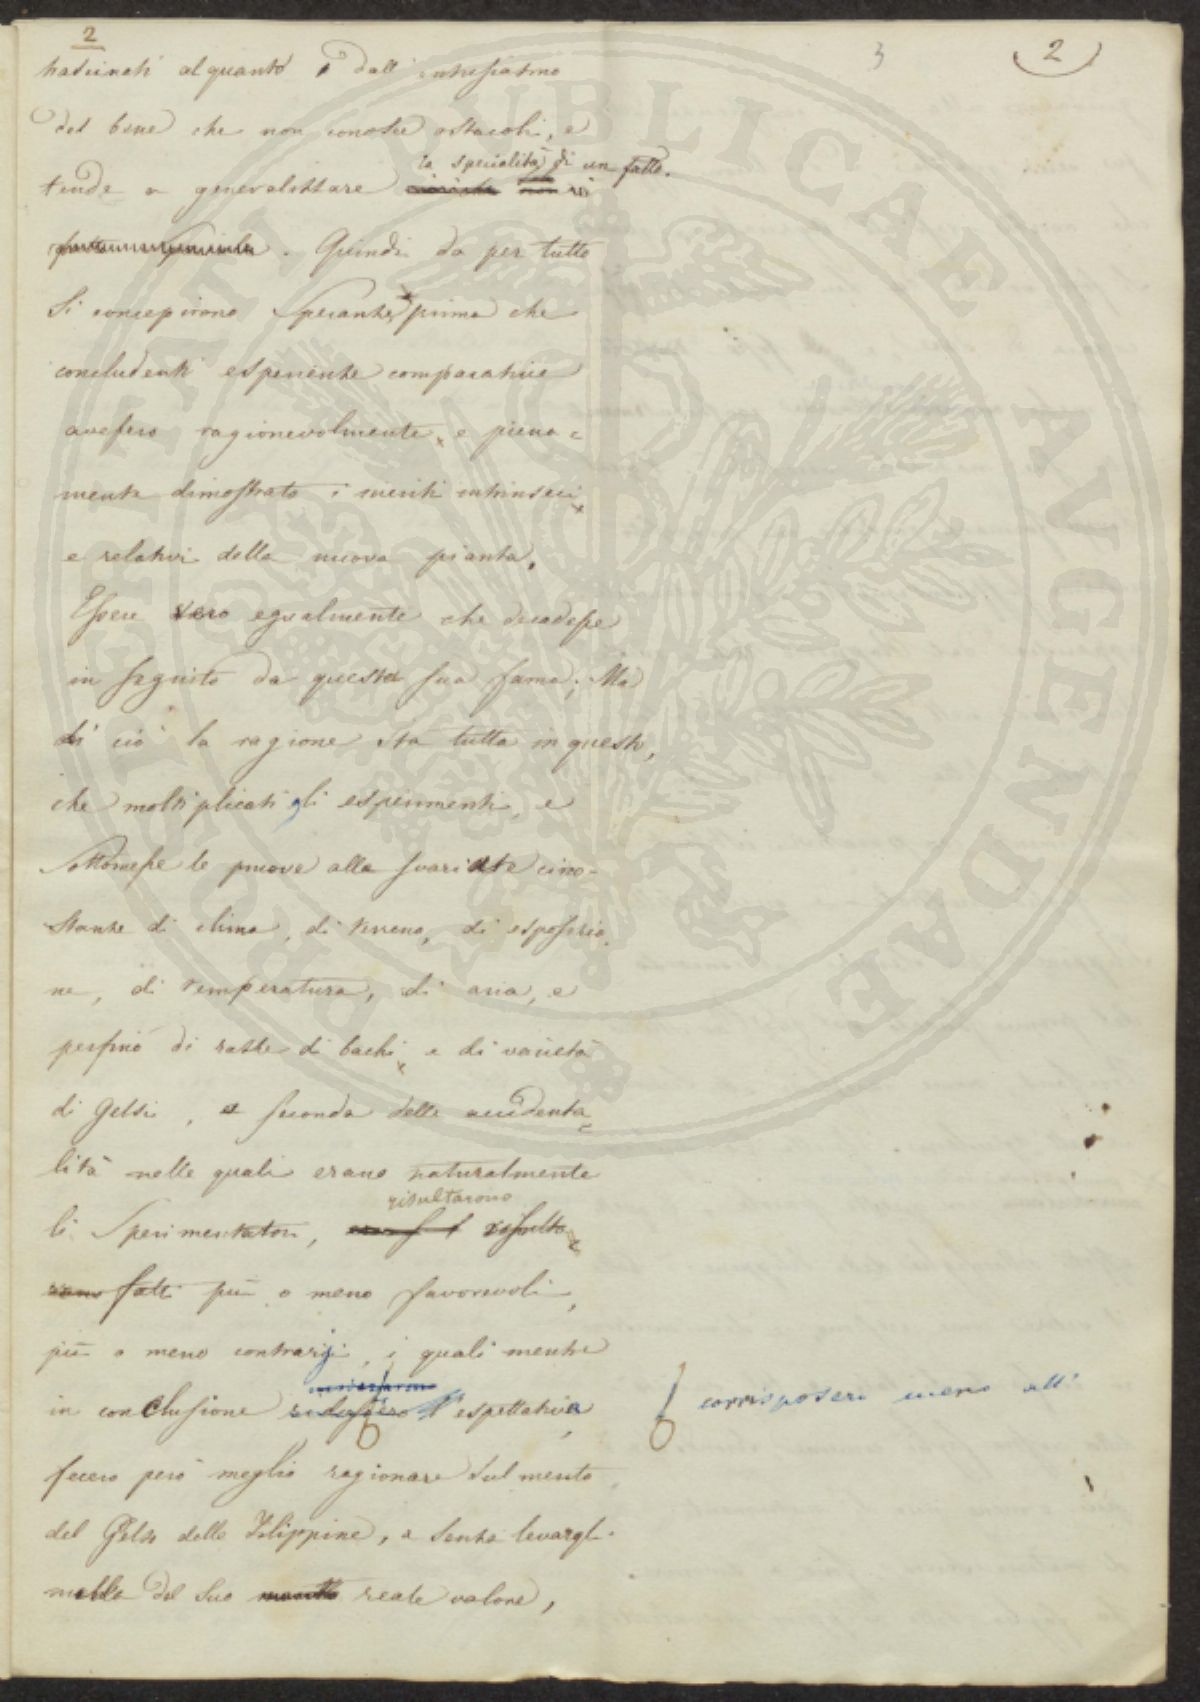 2
3
2
trascinati alquanto dall'entusiasmo
del bene che non conosce ostacoli, e
la specialità di un fatto.
tende a generalizzare
. Quindi da per tutto
si concepirono speranze prima che
concludenti esperienze comparative
avessero ragionevolmente, e piena=
mente dimostrato i meriti intrinseci
e relativi della nuova pianta.
Essere vero egualmente che decadesse
in seguito da questa sua fama; Ma
di ciò la ragione sta tutta in questo,
che moltiplicati gli esperimenti, e
sottomesse le prove alle svariate circo-
stanze di clima, di terreno, di esposizio
ne, di temperatura, di aria, e
persino di razze di bachi, e di varietà
di Gelsi, a seconda delle accidenta=
lità nelle quali erano naturalmente
risultarono
li Sperimentatori,
fatti più o meno favorevoli,
più o meno contrarj, i quali mentre
in conclusione l'espettativa
corrisposero meno all'
fecero però meglio ragionare sul merito
del Gelso delle Filippine, e senza levargli
nulla del suo reale valore,